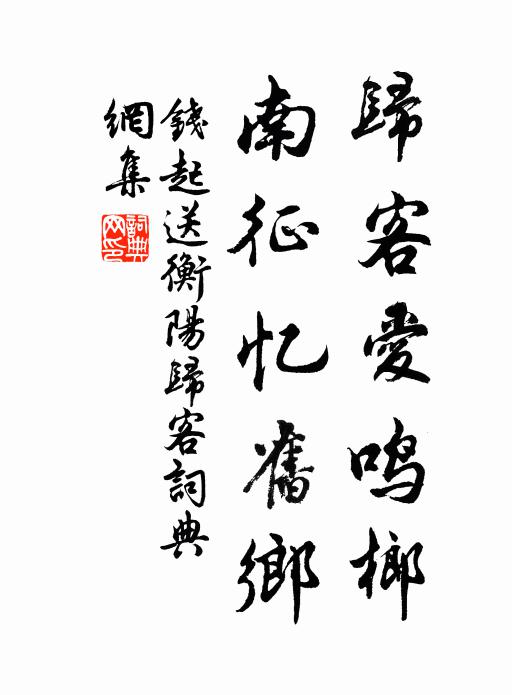 歸客愛鸣榔
南征忆舊鄉
錢起送衡陽歸客詞典
網集
詞典
网印